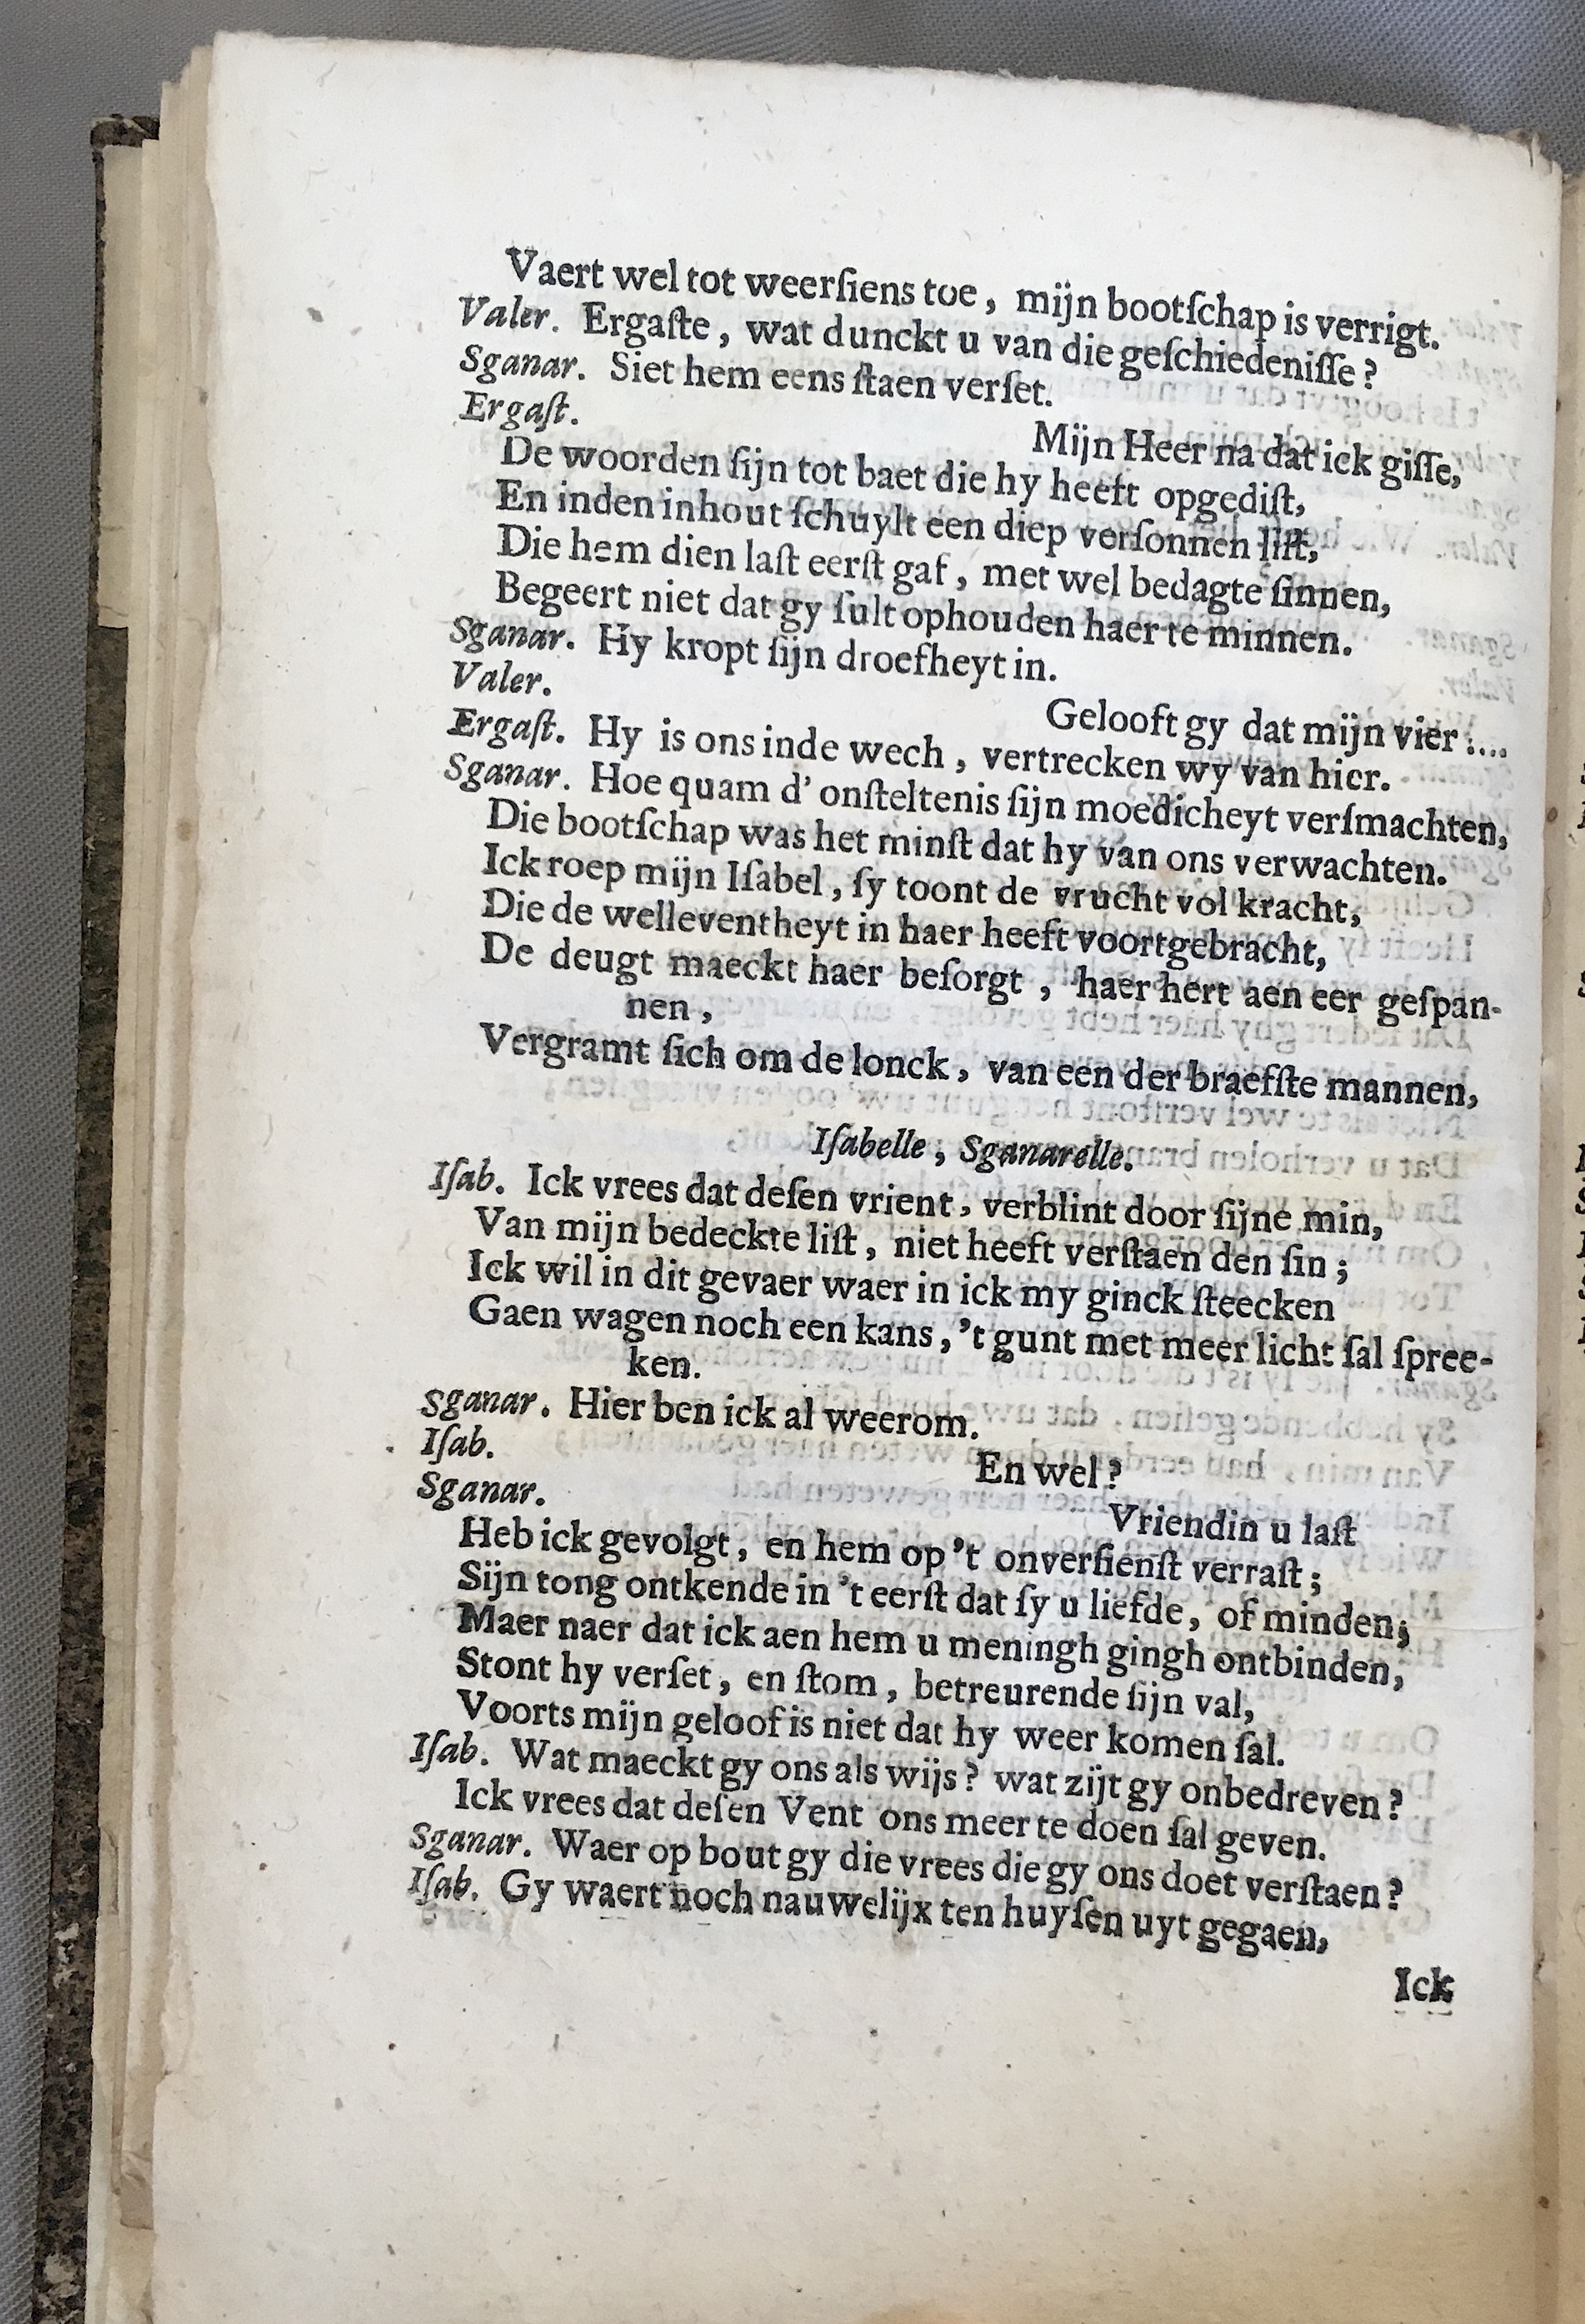 Vaert wel tot weerſiens toe, mijn bootſchap is verrigt.
Valer. Ergaſte, wat dunckt u van die geſchiedeniſſe?
Sganar. Siet hem eens ſtaen verſet.
Ergaſt.
Mijn Heer na dat ick giſſe,
De woorden ſijn tot baet die hy heeft opgediſt,
En inden inhout ſchuylt een diep verſonnen liſt,
Die hem dien laſt eerſt gaf, met wel bedagte ſinnen,
Begeert niet dat gy ſult ophouden haer te minnen.
Sganar. Hy kropt ſijn droefheyt in.
Valer.
Gelooft gy dat mijn vier....
Ergaſt. Hy is ons inde wech, vertrecken wy van hier.
Sganar. Hoe quam d' onſteltenis ſijn moedicheyt verſmachten,
Die bootſchap was het minſt dat hy van ons verwachten.
Ick roep mijn Iſabel, ſy toont de vrucht vol kracht,
Die de welleventheyt in haer heeft voortgebracht,
De deugt maeckt haer beſorgt, haer hert aen eer geſpan-
nen,
Vergramt ſich om de lonck, van een der braefſte mannen,
Iſabelle, Sganarelle.
Iſab. Ick vrees dat deſen vrient, verblint door ſijne min,
Van mijn bedeckte liſt, niet heeft verſtaen den ſin;
Ick wil in dit gevaer waer in ick my ginck ſteecken
Gaen wagen noch een kans, 't gunt met meer licht ſal ſpree-
ken.
Sganar. Hier ben ick al weerom.
Iſab.
En wel?
Sganar.
Vriendin u laſt
Heb ick gevolgt, en hem op 't onverſienſt verraſt;
Sijn tong ontkende in 't eerſt dat ſy u liefde, of minden;
Maer naer dat ick aen hem u meningh gingh ontbinden,
Stont hy verſet, en ſtom, betreurende ſijn val,
Voorts mijn geloof is niet dat hy weer komen ſal.
Iſab. Wat maeckt gy ons als wijs? wat zijt gy onbedreven?
Ick vrees dat deſen Vent ons meer te doen ſal geven.
Sganar. Waer op bout gy die vrees die gy ons doet verſtaen?
Iſab. Gy waert noch nauwelijx ten huyſen uyt gegaen,
Ick